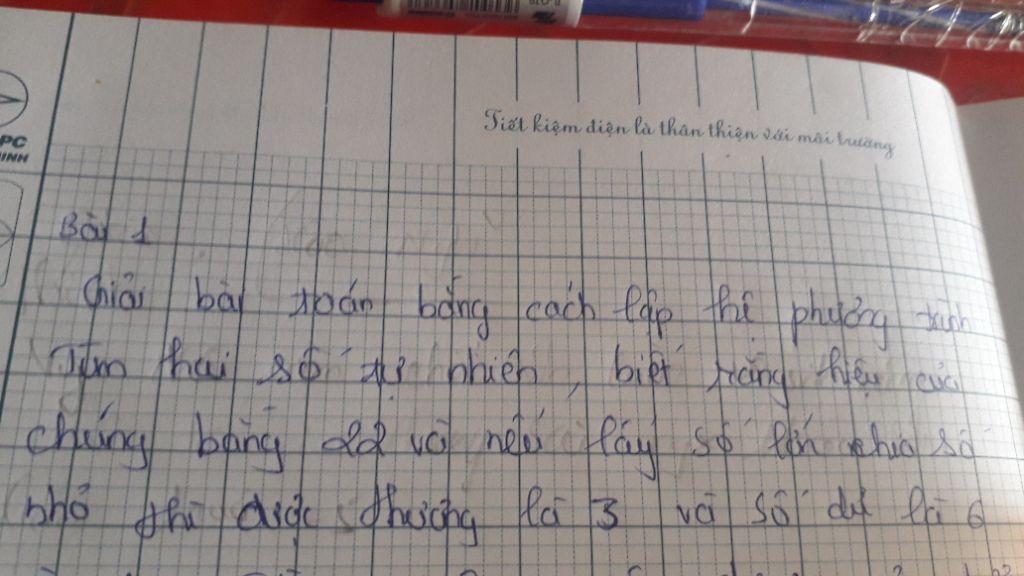 PC
INH
Tiết kiệm điện là thân thiện với môi trường
Bài 1
Giải bài toán bằng cách lập hệ phương trình
Tìm hai số tự nhiên, biết rằng hiệu của
chúng bằng 22 và nếu lấy số lớn chia số
nhỏ thì được thương là 3 và số dư là 6